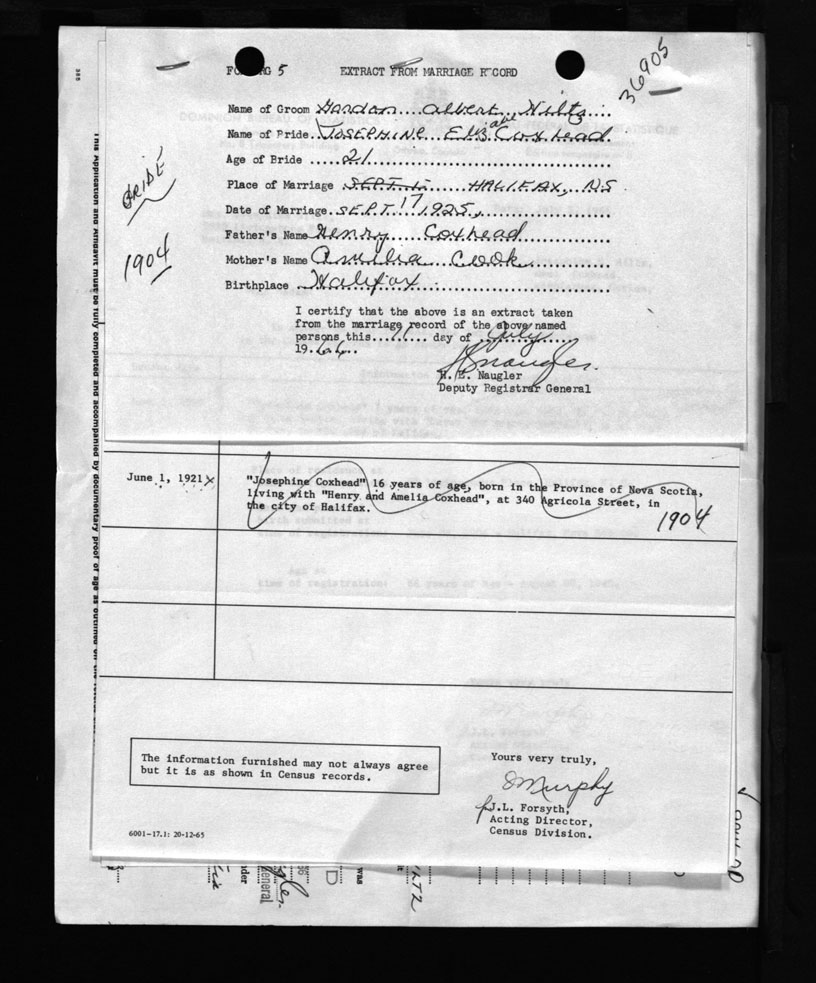 36905
EXTRACT FROM MARRIAGE RECORD
Name of Groom Gordon Albert Hiltz
Name of Bride Josephine Eliz abeth Coxhead
Age of Bride 21
Place of Marriage SEPT. HALIFAX, N.S
Date of Marriage SEPT. 17 1925
Father's Name Henry Coxhead
Mother's Name Amelia Cook
Birthplace Halifax
BRIDE
1904
I certify that the above is an extract taken
from the marriage record of the above named
persons this day of July
19.66
H. B. Naugler
Deputy Registrar General
This Application and Affidavit must be fully completed and accompanied by documentary proof of age as outlined on the
June 1, 1921 "Josephine Coxhead" 16 years of age, born in the Province of Nova Scotia,
living with "Henry and Amelia Coxhead", at 340 Agricola Street, in
the city of Halifax.
1904
The information furnished may not always agree
but it is as shown in Census records.
Yours very truly,
Murphy
J.L. Forsyth,
Acting Director,
Census Division.
6001-17.1: 20-12-65
was